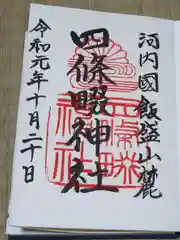 河内國飯盛山麓
四條畷神社
令和元年十月二十日